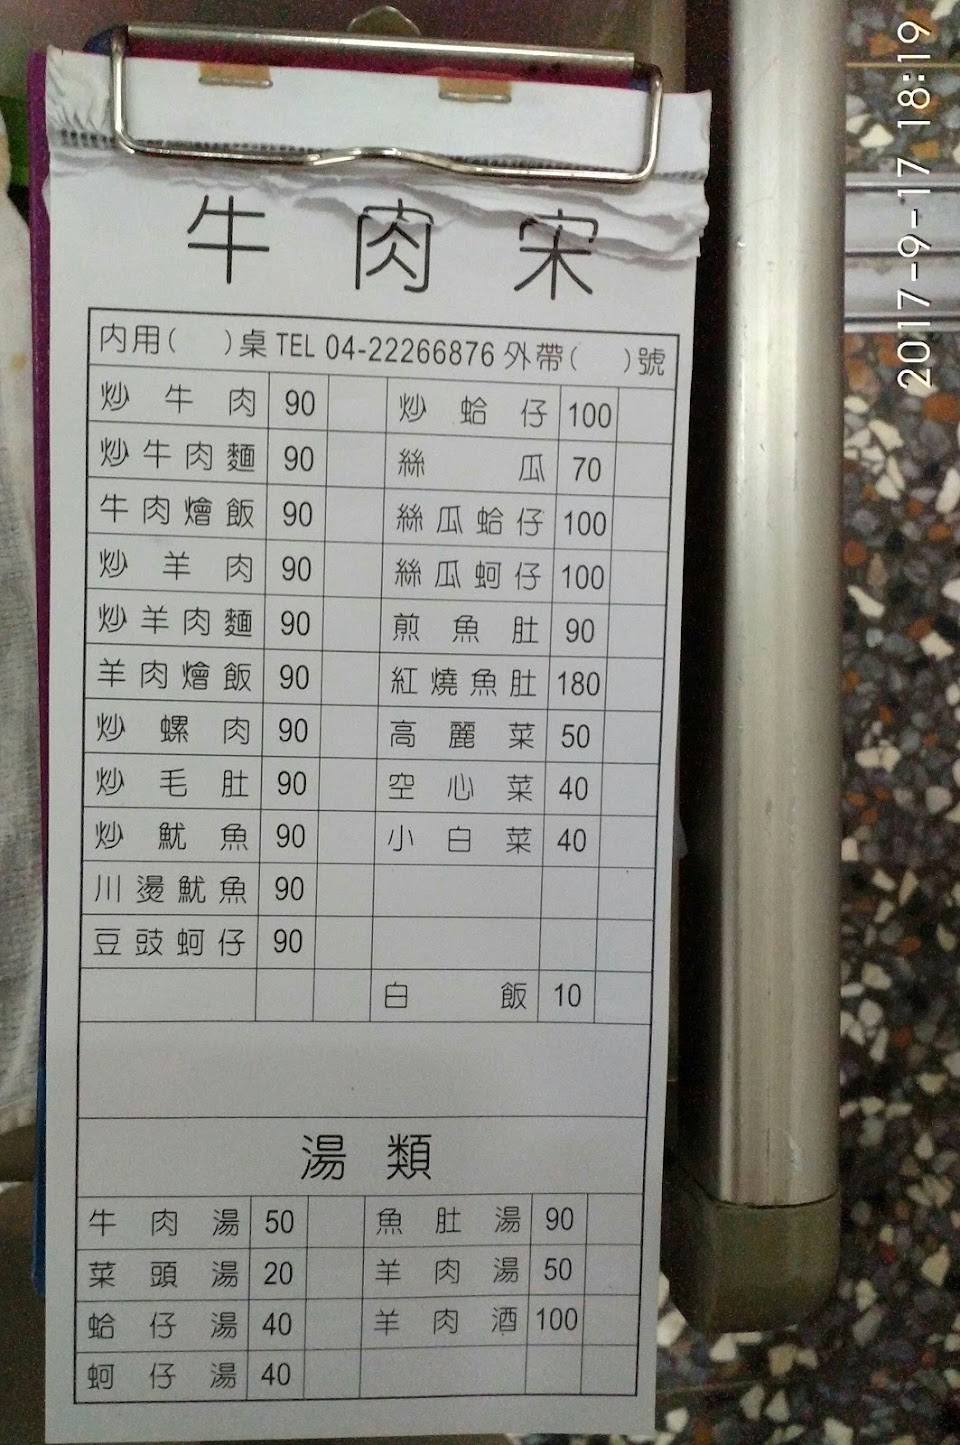 牛肉宋
內用(　)桌 TEL 04-22266876 外帶(　)號
炒牛肉 90 炒蛤仔 100
炒牛肉麵 90 絲瓜 70
牛肉燴飯 90 絲瓜蛤仔 100
炒羊肉 90 絲瓜蚵仔 100
炒羊肉麵 90 煎魚肚 90
羊肉燴飯 90 紅燒魚肚 180
炒螺肉 90 高麗菜 50
炒毛肚 90 空心菜 40
炒魷魚 90 小白菜 40
川燙魷魚 90
豆豉蚵仔 90
白飯 10
湯類
牛肉湯 50 魚肚湯 90
菜頭湯 20 羊肉湯 50
蛤仔湯 40 羊肉酒 100
蚵仔湯 40
2017-9-17 18:19